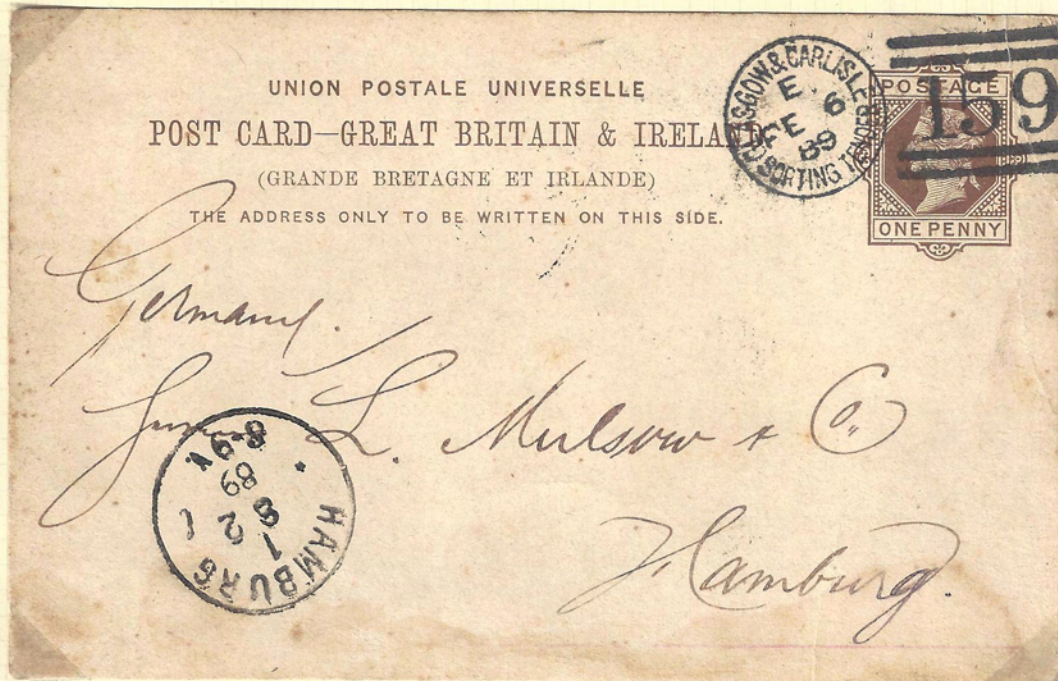 UNION POSTALE UNIVERSELLE
POST CARD—GREAT BRITAIN & IRELAND
(GRANDE BRETAGNE ET IRLANDE)
THE ADDRESS ONLY TO BE WRITTEN ON THIS SIDE.
GLASGOW & CARLISLE
SORTING TENDER
E
FE 6
89
159
POSTAGE
ONE PENNY
Germany.
L. Mulsow & Co.
Hamburg.
HAMBURG
1
8 2
89
8-9V